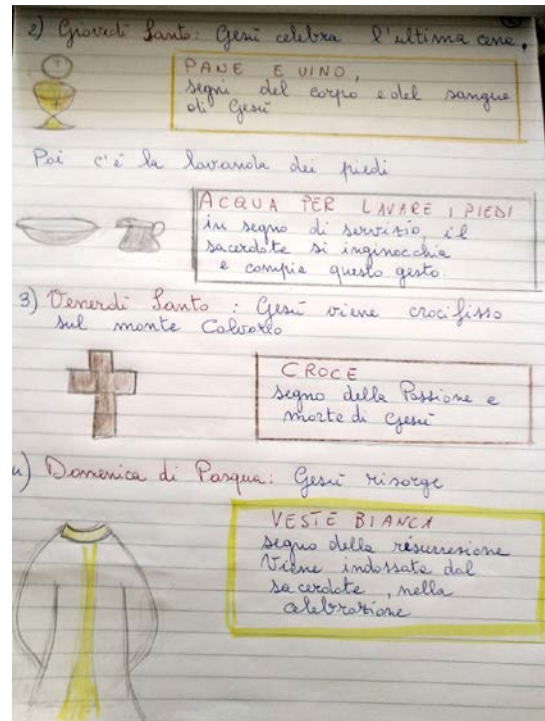 2) Giovedì Santo: Gesù celebra l'ultima cena,
PANE E VINO,
segni del corpo e del sangue
di Gesù
Poi c'è la lavanda dei piedi
ACQUA PER LAVARE I PIEDI
in segno di servizio, il
sacerdote si inginocchia
e compie questo gesto.
3) Venerdì Santo: Gesù viene crocifisso
sul monte Calvario
CROCE
segno della Passione e
morte di Gesù
4) Domenica di Pasqua: Gesù risorge
VESTE BIANCA
segno della resurrezione
Viene indossata dal
sacerdote, nella
celebrazione